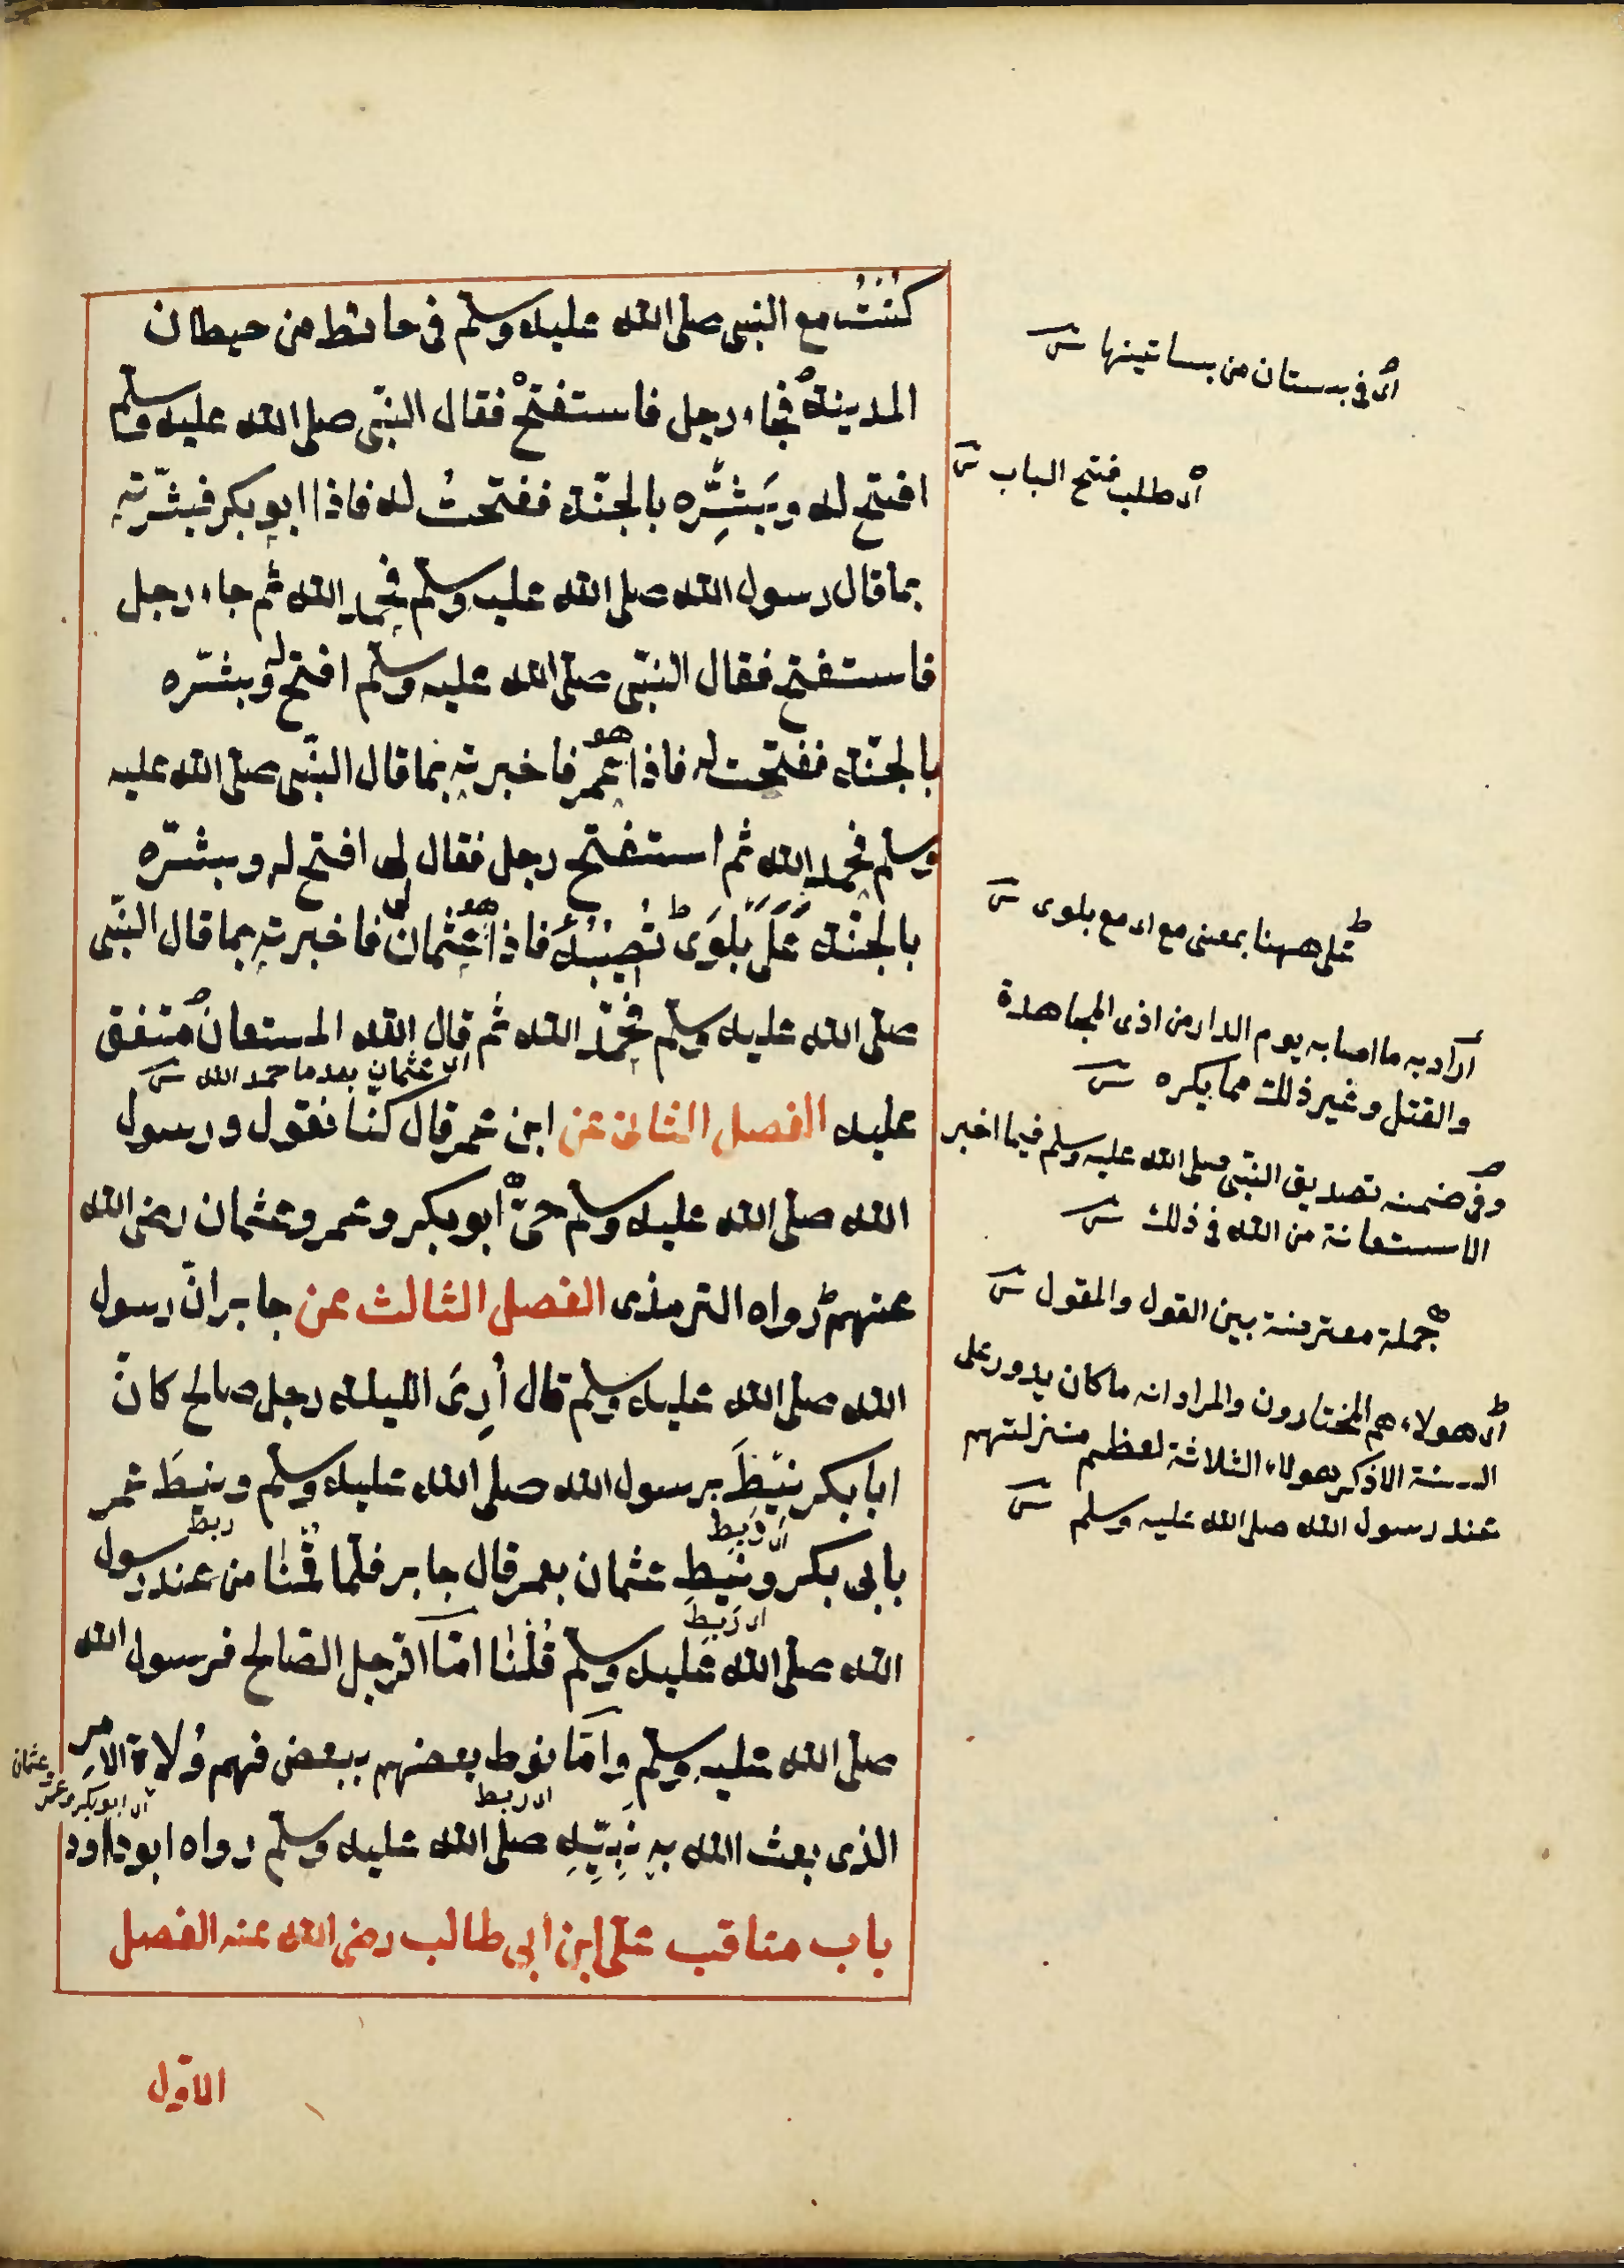 كُنْتُ مع النبى صلى الله عليه وسلم فى حائط من حيطان
المدينة فجاء رجل فاستفتح فقال النبى صلى الله عليه وسلم
افتح له وبَشِّره بالجنّة ففتحتُ له فاذا ابو بكر فبشّرته
بما قال رسول الله صلى الله عليه وسلم فحمد الله ثم جاء رجل
فاستفتح فقال النبّى صلى الله عليه وسلم افتح له وبشّره
بالجنّة ففتحت له فاذا هو عمر فاخبرته بما قال النبّى صلى الله عليه
وسلم فحمد الله ثم استفتح رجل فقال لى افتح له وبشّره
بالجنّة عَلَى بَلْوَى تُصِيبُهُ فاذا هو عثمان فاخبرته بما قال النبّى
صلى الله عليه وسلم فحمد الله ثم قال الله المستعان متفق
اى عثمان بعد ما حمد الله
عليه الفصل الثانى عن ابن عمر قال كنّا نقول ورسول
الله صلى الله عليه وسلم حىّ ابو بكر وعمر وعثمان رضى الله
عنهم رواه الترمذى الفصل الثالث عن جابر انّ رسول
الله صلى الله عليه وسلم قال أُرِىَ الليلة رجل صالح كانّ
ابا بكر نيطَ برسول الله صلى الله عليه وسلم ونيطَ عمر
اى رُبط
ربط
بابى بكر ونيط عثمان بعمر قال جابر فلمّا قُمْنا من عند رسول
اى رُبط
الله صلى الله عليه وسلم قُلْنا امّا الرّجل الصّالح فرسول الله
صلى الله عليه وسلم وامّا نوط بعضهم ببعض فهم وُلاة الامر
اى ربط
اى ابو بكر وعمر وعثمان
الذى بعث الله به نَبِيَّه صلى الله عليه وسلم رواه ابو داود
باب مناقب على ابن ابى طالب رضى الله عنه الفصل
الاوّل
اى فى بستان من بساتينها
اى طلب فتح الباب
على ههنا بمعنى مع اى مع بلوى
اراد به ما اصابه يوم الدار من اذى المجاهدة
والقتل وغير ذلك مما يكره
وفى ضمنه تصديق النبّى صلى الله عليه وسلم فيما اخبر
الاستعانة من الله فى ذلك
جملة معترضة بين القول والمقول
اى هولاء هم المختارون والمراد انه ما كان يدور على
السنة الا ذكر هولاء الثلاثة لعظم منزلتهم
عند رسول الله صلى الله عليه وسلم